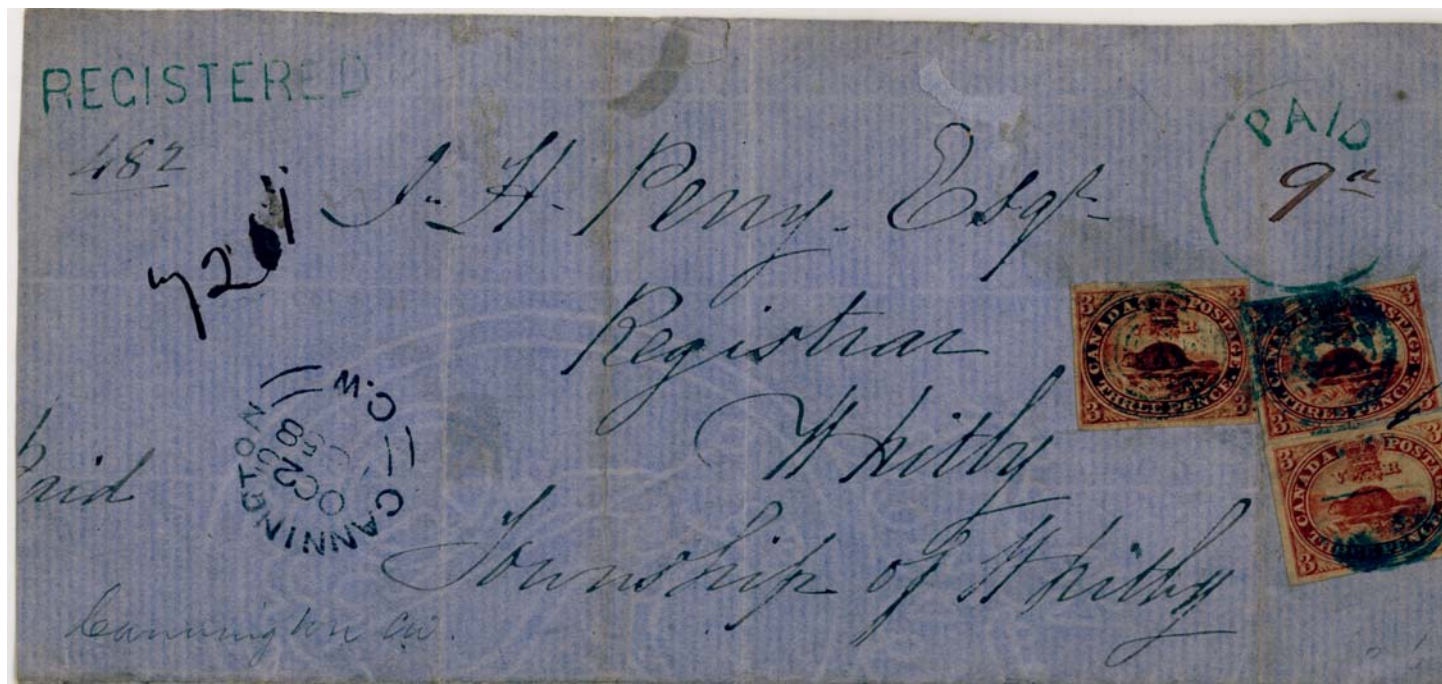 REGISTERED
PAID
9d
482
J. H. Perry. Esqr
Registrar
Whitby
Township of Whitby
Paid
CANNINGTON C.W.
OC 2
58
Cannington CW.
3 CANADA POSTAGE 3
3 THREE PENCE 3
3 CANADA POSTAGE 3
3 THREE PENCE 3
3 CANADA POSTAGE
3 THREE PENCE